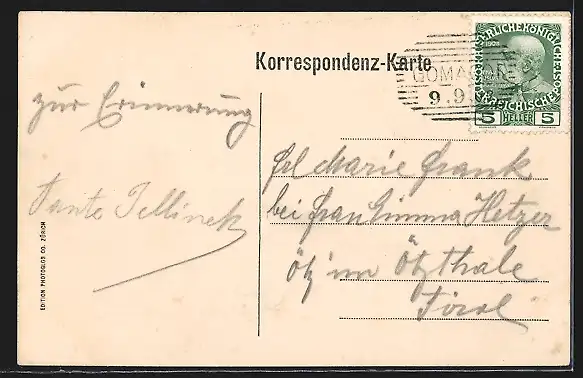 Korrespondenz-Karte
1908
HELLER
5 5
GOMAGOI
9.9
zur Erinnerung
Tante Jellinek
Frl Marie Frank
bei Frau Emma Hetzer
Ötz im Ötzthale
Tirol
EDITION PHOTOGLOB CO. ZÜRICH